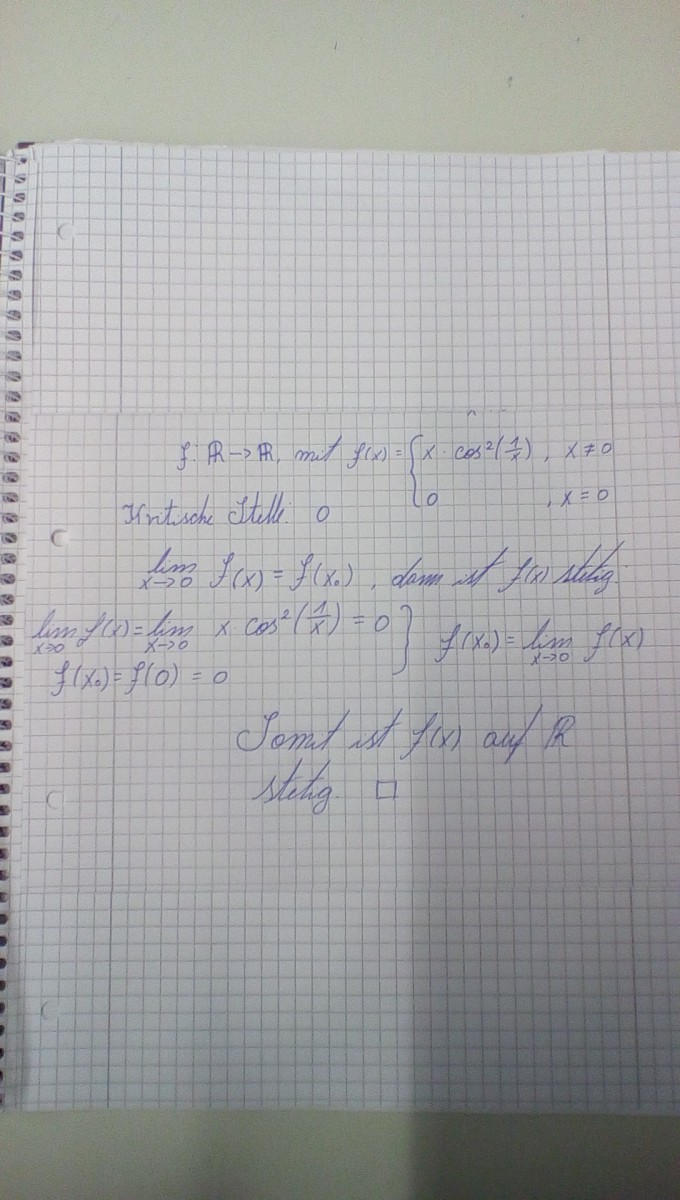 f: ℝ → ℝ, mit f(x) = { x · cos²(1/x) , x ≠ 0
0 , x = 0
Kritische Stelle: 0
lim x→0 f(x) = f(x₀) , dann ist f(x) stetig.
lim x→0 f(x) = lim x→0 x · cos²(1/x) = 0 } f(x₀) = lim x→0 f(x)
f(x₀) = f(0) = 0
Somit ist f(x) auf ℝ
stetig. □